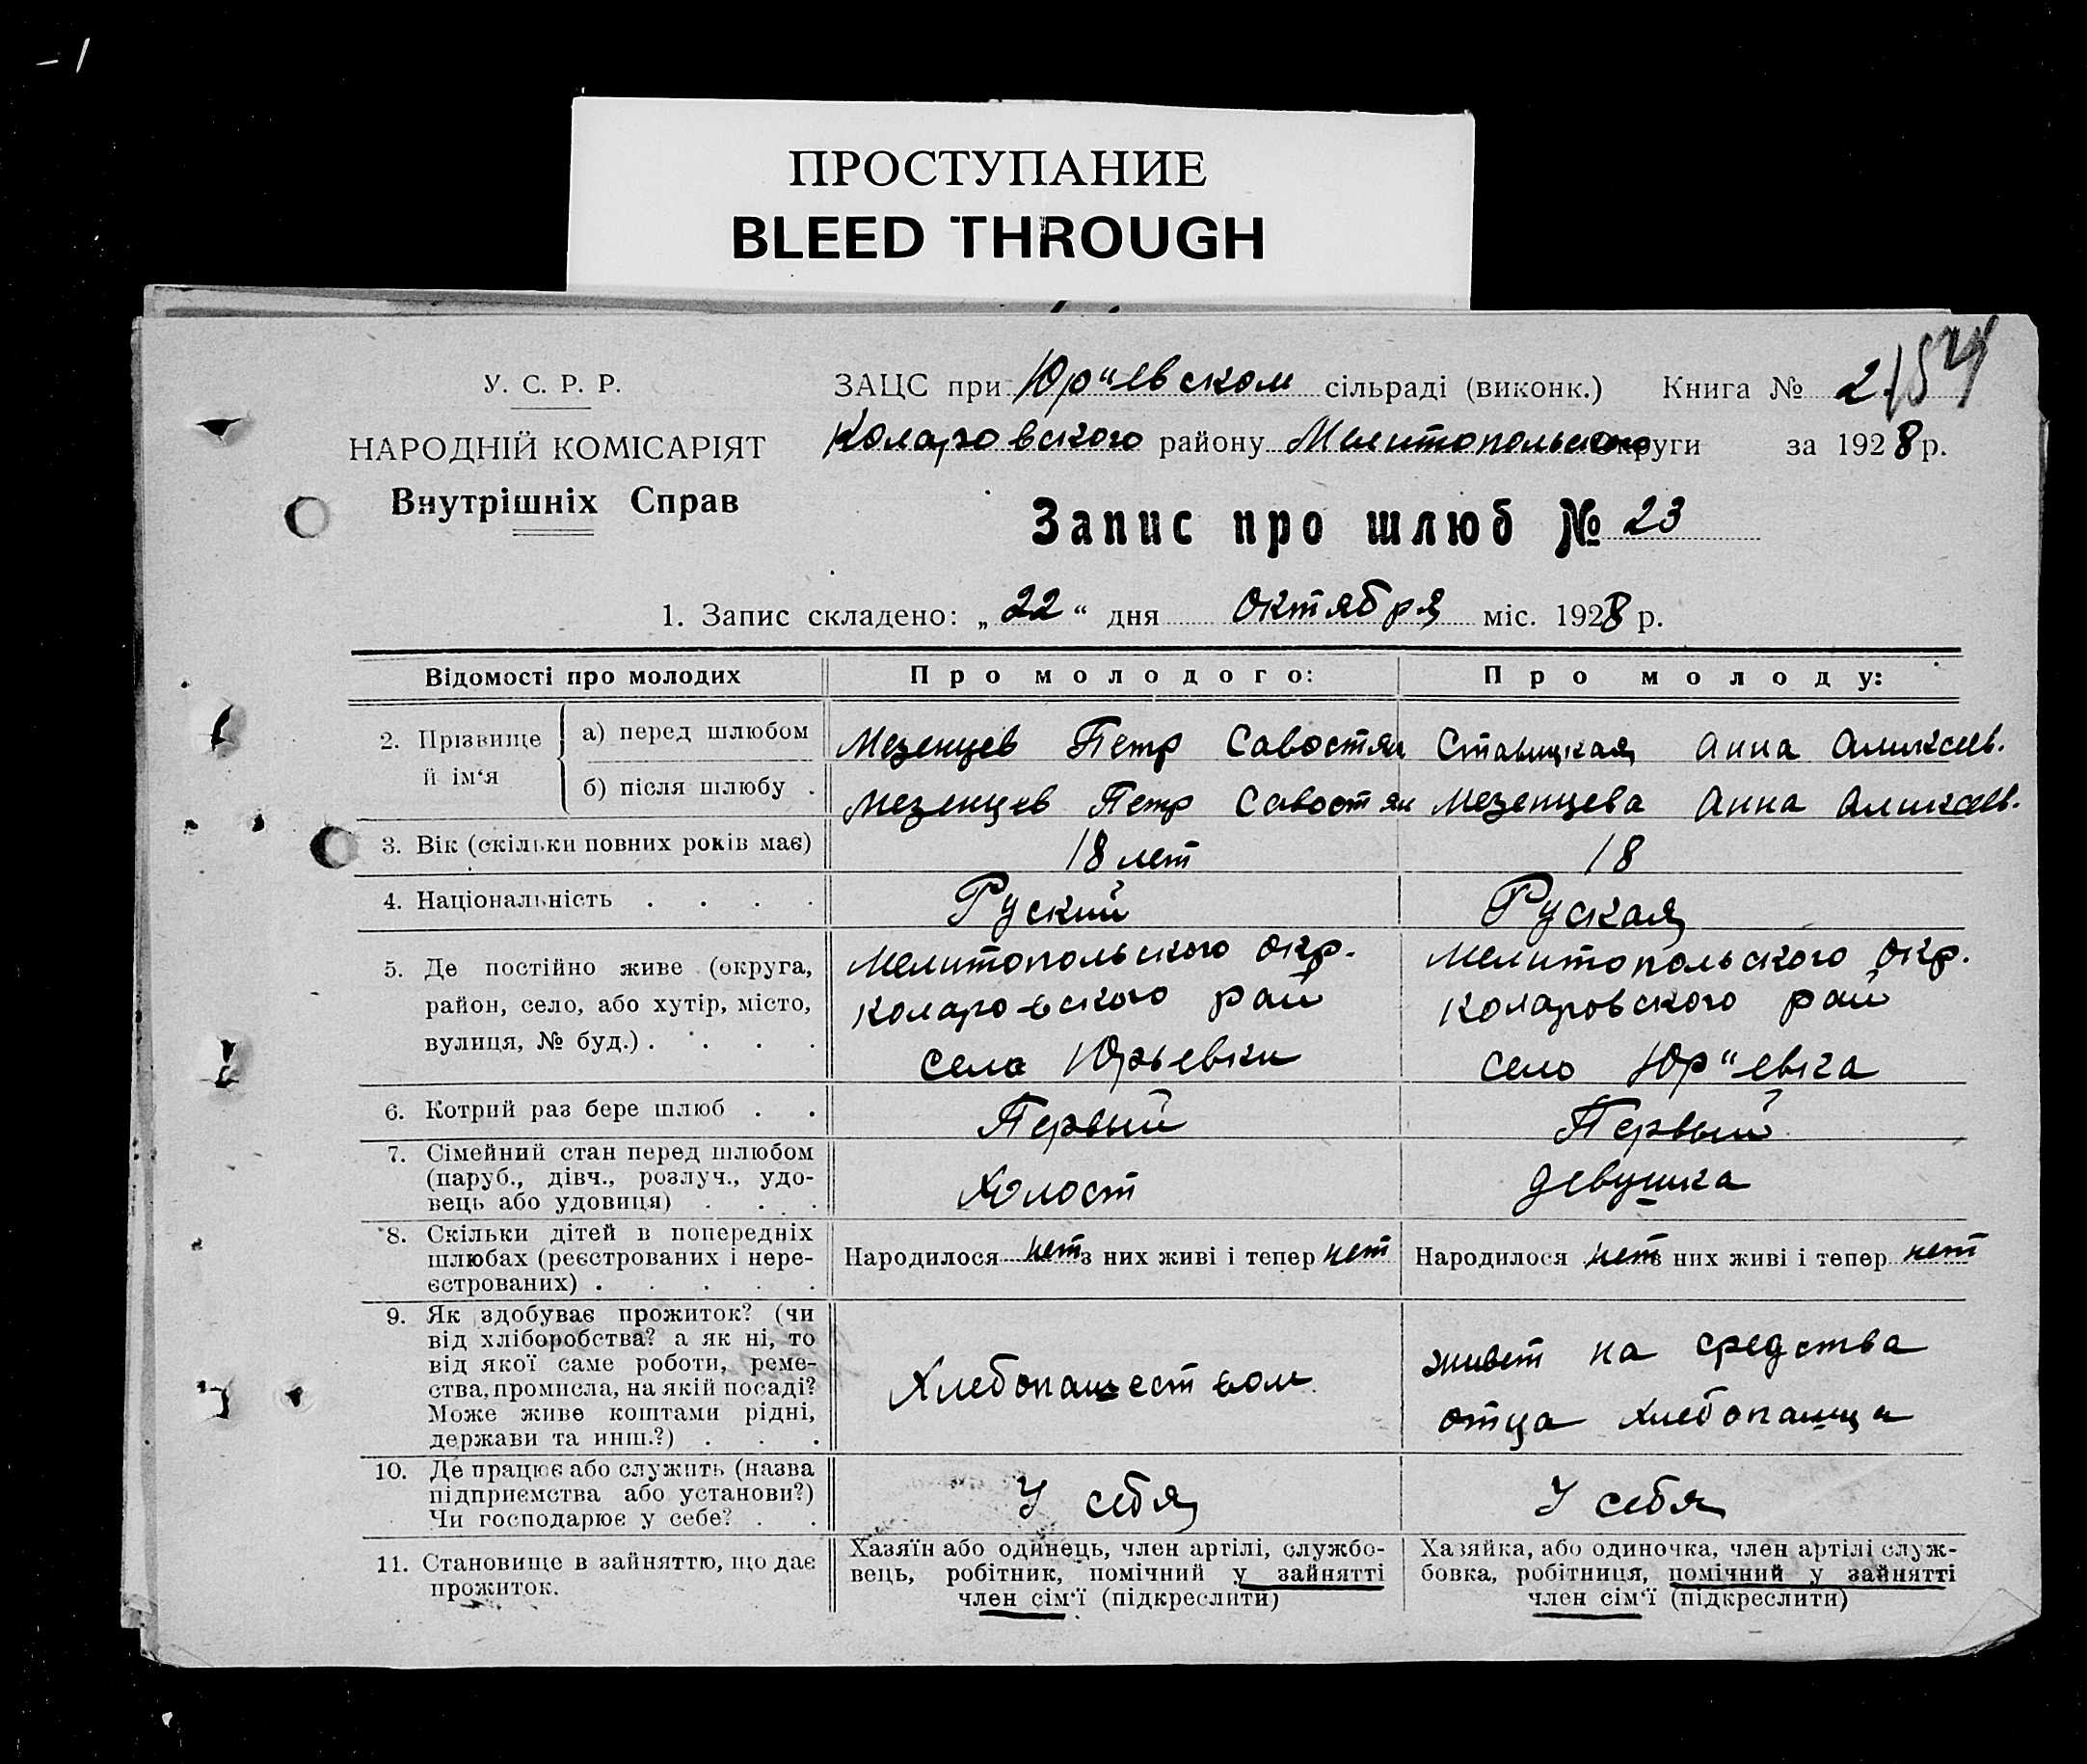 ПРОСТУПАНИЕ
BLEED THROUGH
У. С. Р. Р.
НАРОДНІЙ КОМІСАРІЯТ
Внутрішніх Справ
ЗАЦС при Юрʺевском сільраді (виконк.) Книга № 2
Коларовского району Мелитопольского округи за 1928 р.
Запис про шлюб № 23
1. Запис складено: „22“ дня Октября міс. 1928 р.
Відомості про молодих
Про молодого:
Про молоду:
2. Прізвище й ім‘я
а) перед шлюбом
Мезенцев Петр Савостян
Ставицкая Анна Алексеев.
б) після шлюбу .
Мезенцев Петр Савостян
Мезенцева Анна Алексеев.
3. Вік (скільки повних років має)
18 лет
18
4. Національність . . . .
Руский
Руская
5. Де постійно живе (округа,
район, село, або хутір, місто,
вулиця, № буд.) . . . .
Мелитопольского окр.
Коларовского рай
села Юрьевки
Мелитопольского окр.
Коларовского рай
село Юрʺевка
6. Котрий раз бере шлюб . .
Первый
Первый
7. Сімейний стан перед шлюбом
(паруб., дівч., розлуч., удо-
вець або удовиця) . . .
Холост
девушка
8. Скільки дітей в попередніх
шлюбах (реєстрованих і нере-
єстрованих) . . . . .
Народилося нет з них живі і тепер нет
Народилося нет з них живі і тепер нет
9. Як здобуває прожиток? (чи
від хліборобства? а як ні, то
від якої саме роботи, реме-
ства, промисла, на якій посаді?
Може живе коштами рідні,
держави та инш.?) . . .
Хлебопашеством
живет на средства
отца хлебопашца
10. Де працює або служить (назва
підприємства або установи?)
Чи господарює у себе? . .
У себя
У себя
11. Становище в зайняттю, що дає
прожиток.
Хазяїн або одинець, член артілі, службо-
вець, робітник, помічний у зайнятті
член сім‘ї (підкреслити)
Хазяйка, або одиночка, член артілі служ-
бовка, робітниця, помічний у зайнятті
член сім‘ї (підкреслити)